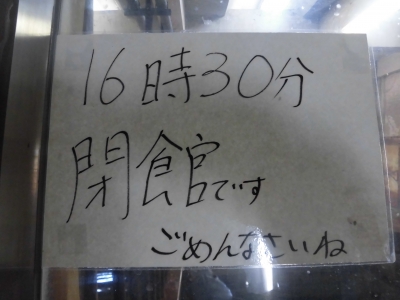 16時30分
閉館です
ごめんなさいね